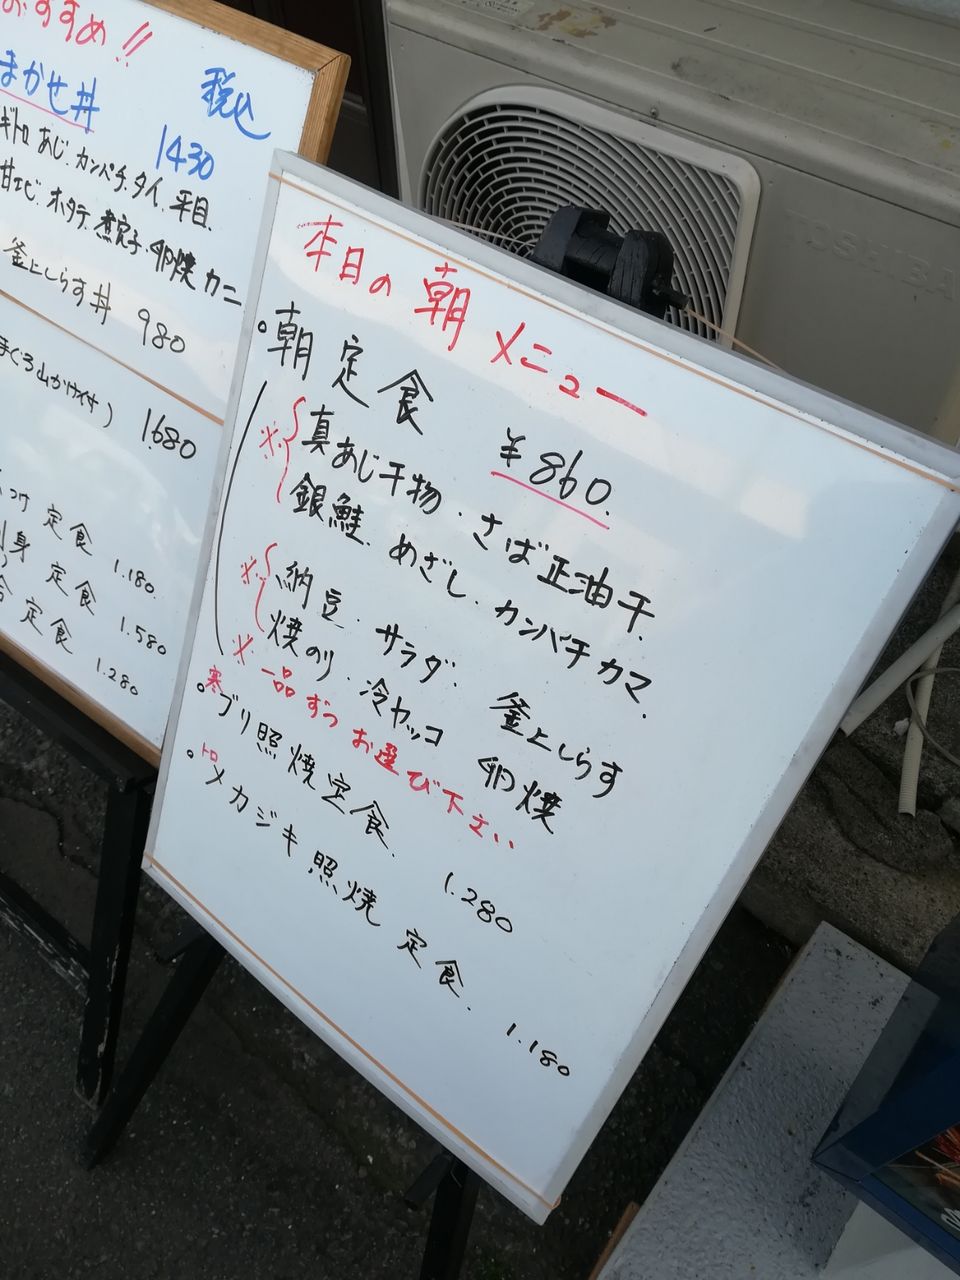 おすすめ!!
まかせ丼
税込
1430
ギトロ あじ.カンパチ.タイ.平目.
甘エビ.ホタテ.煮穴子.卵焼 カニ
釜上しらす丼 980
まぐろ山かけ
1.680
定食 1.180.
刺身 定食 1.580
定食 1.280
本日の朝メニュー
朝定食 ¥860.
※ 真あじ干物.さば正油干.
銀鮭.めざし.カンパチカマ.
※ 納豆.サラダ.釜上しらす
焼のり.冷ヤッコ 卵焼
※ 一品ずつお選び下さい
寒ブリ照焼定食. 1.280
トロメカジキ照焼定食. 1.180
TOSHIBA